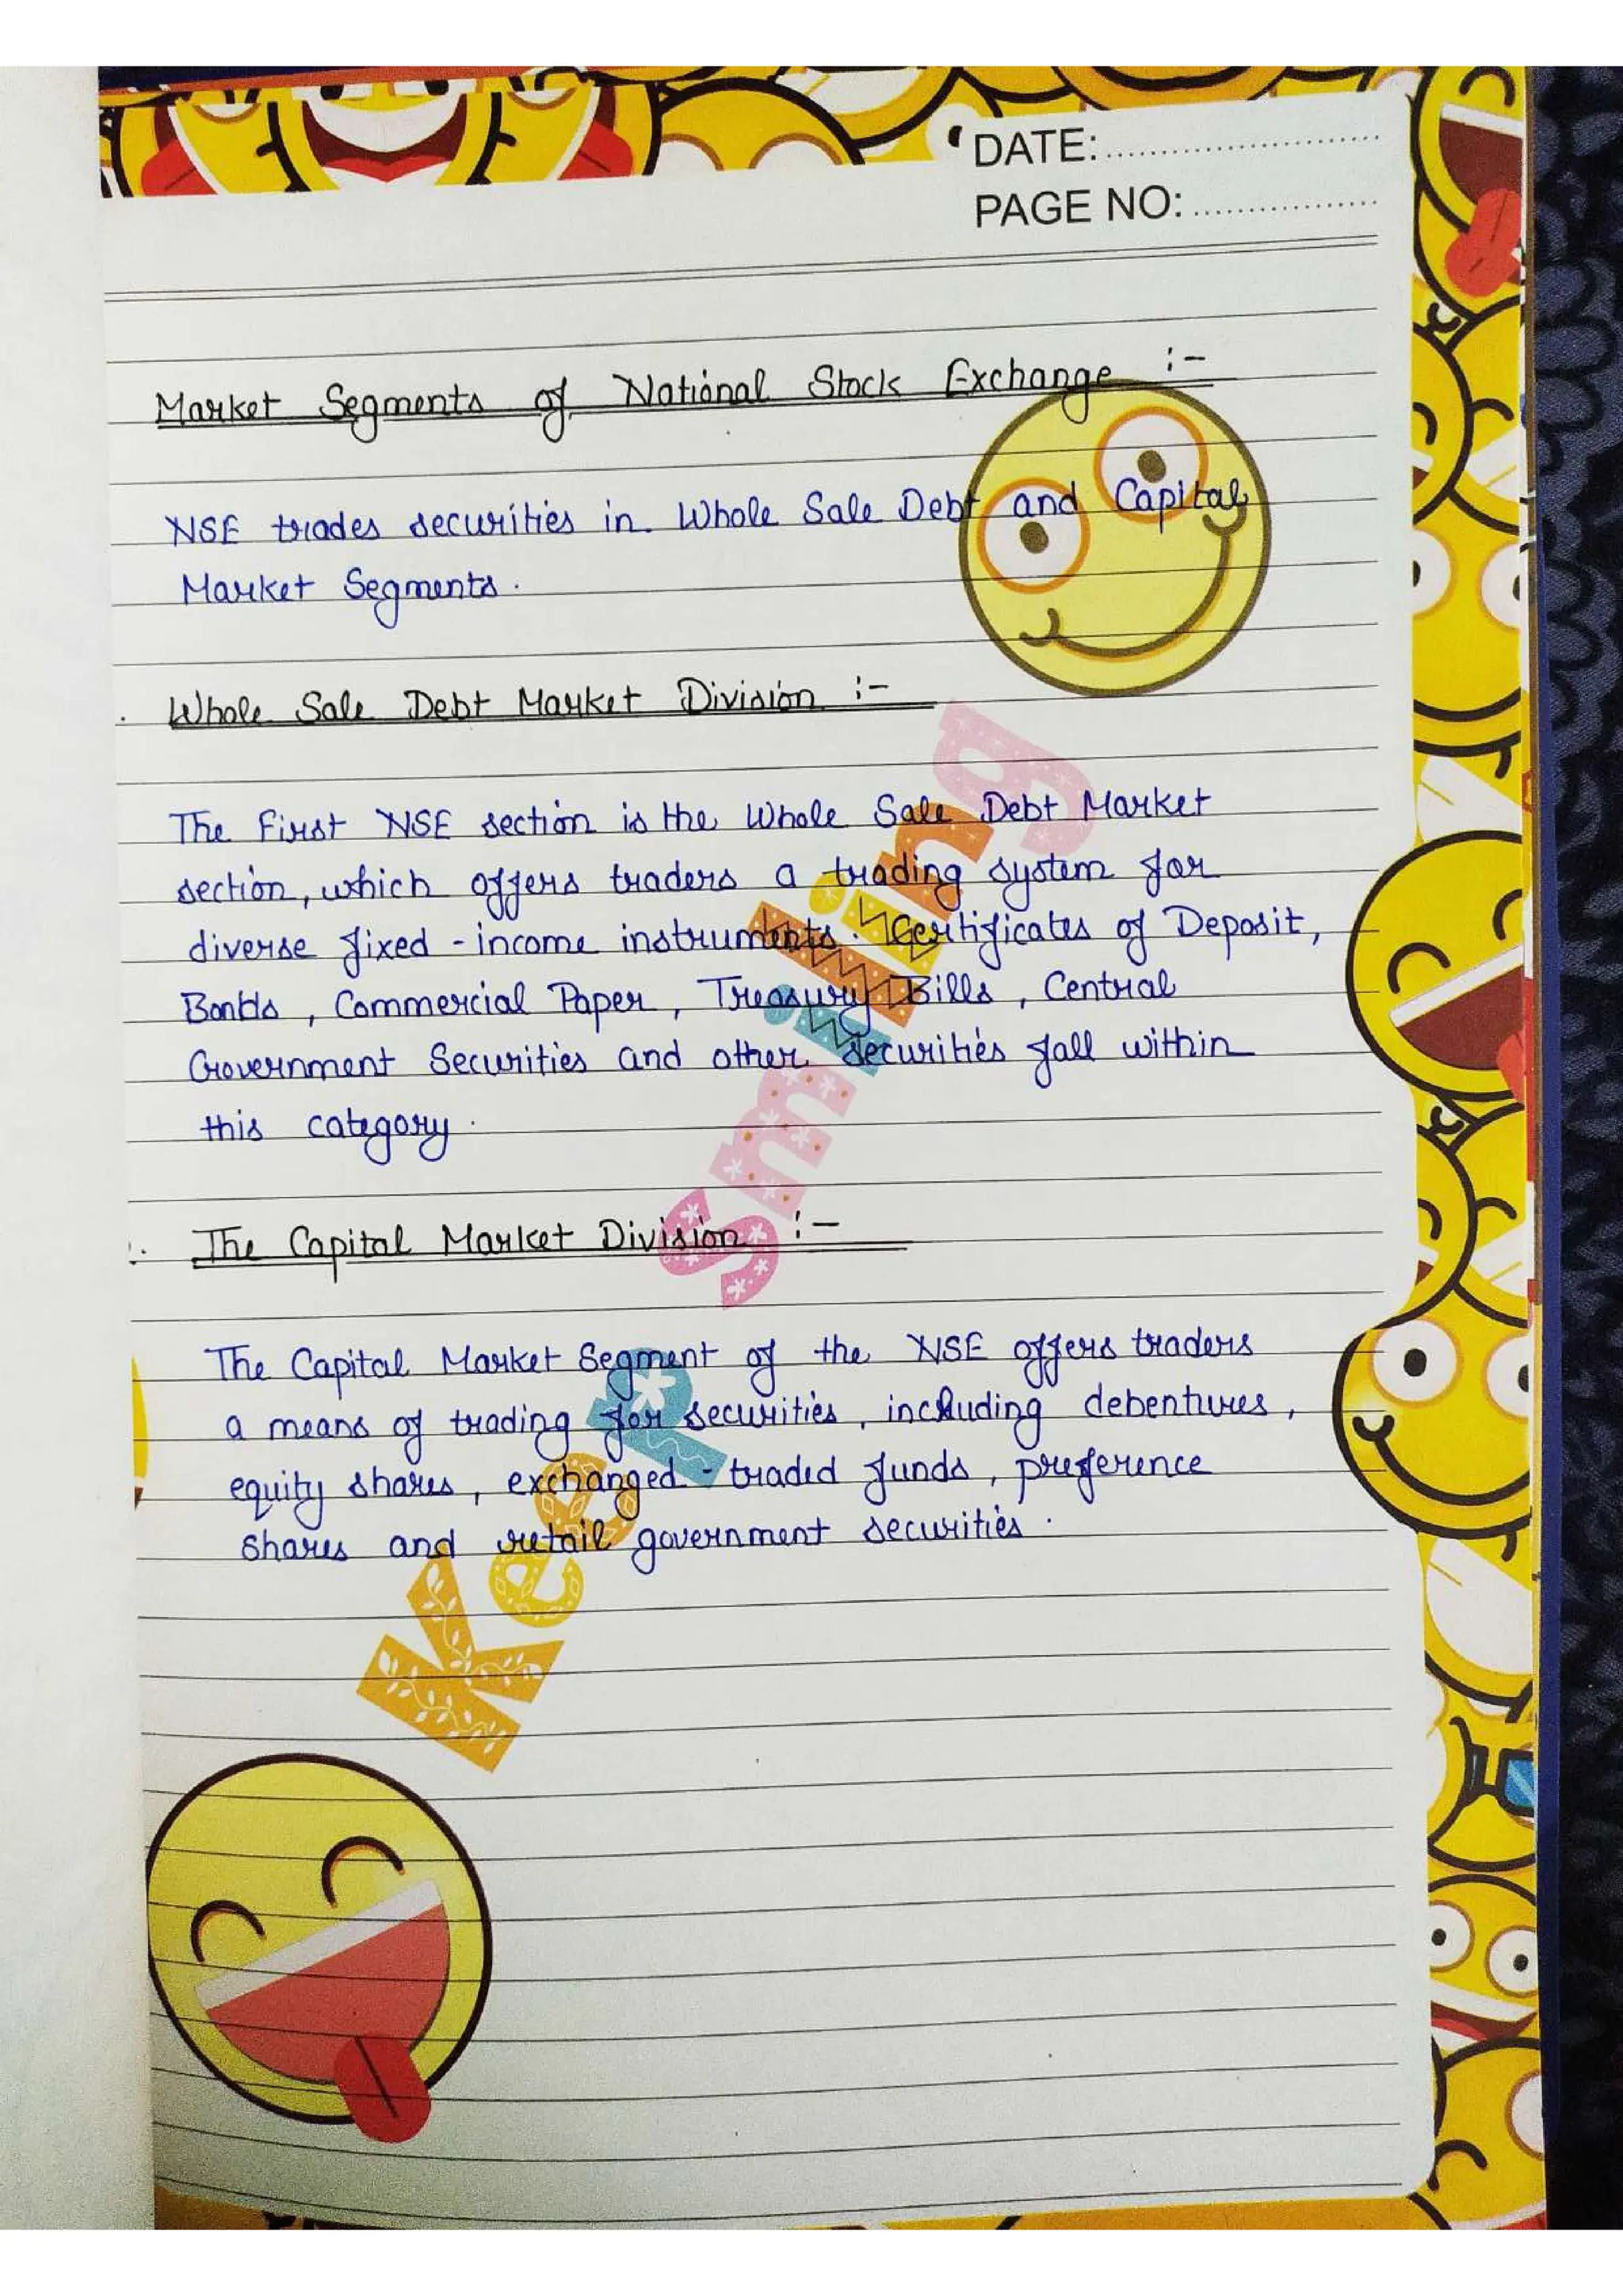 DATE:
PAGE NO:
Market Segments of National Stock Exchange :-
NSE trades securities in Whole Sale Debt and Capital
Market Segments.
. Whole Sale Debt Market Division :-
The First NSE section is the Whole Sale Debt Market
section, which offers traders a trading system for
diverse fixed - income instruments. Certificates of Deposit,
Bonds, Commercial Paper, Treasury Bills, Central
Government Securities and other securities fall within
this category.
. The Capital Market Division :-
The Capital Market Segment of the NSE offers traders
a means of trading for securities, including debentures,
equity shares, exchanged - traded funds, preference
shares and retail government securities.
Keep Smiling